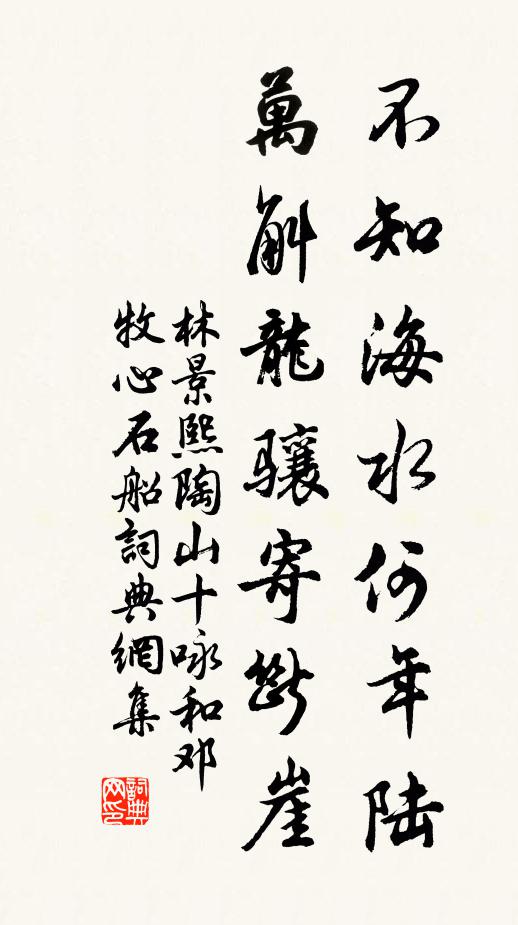 不知海水何年陸
萬斛龍驤寄斷崖
林景熙陶山十咏和邓
牧心石船詞典網集
詞典網印